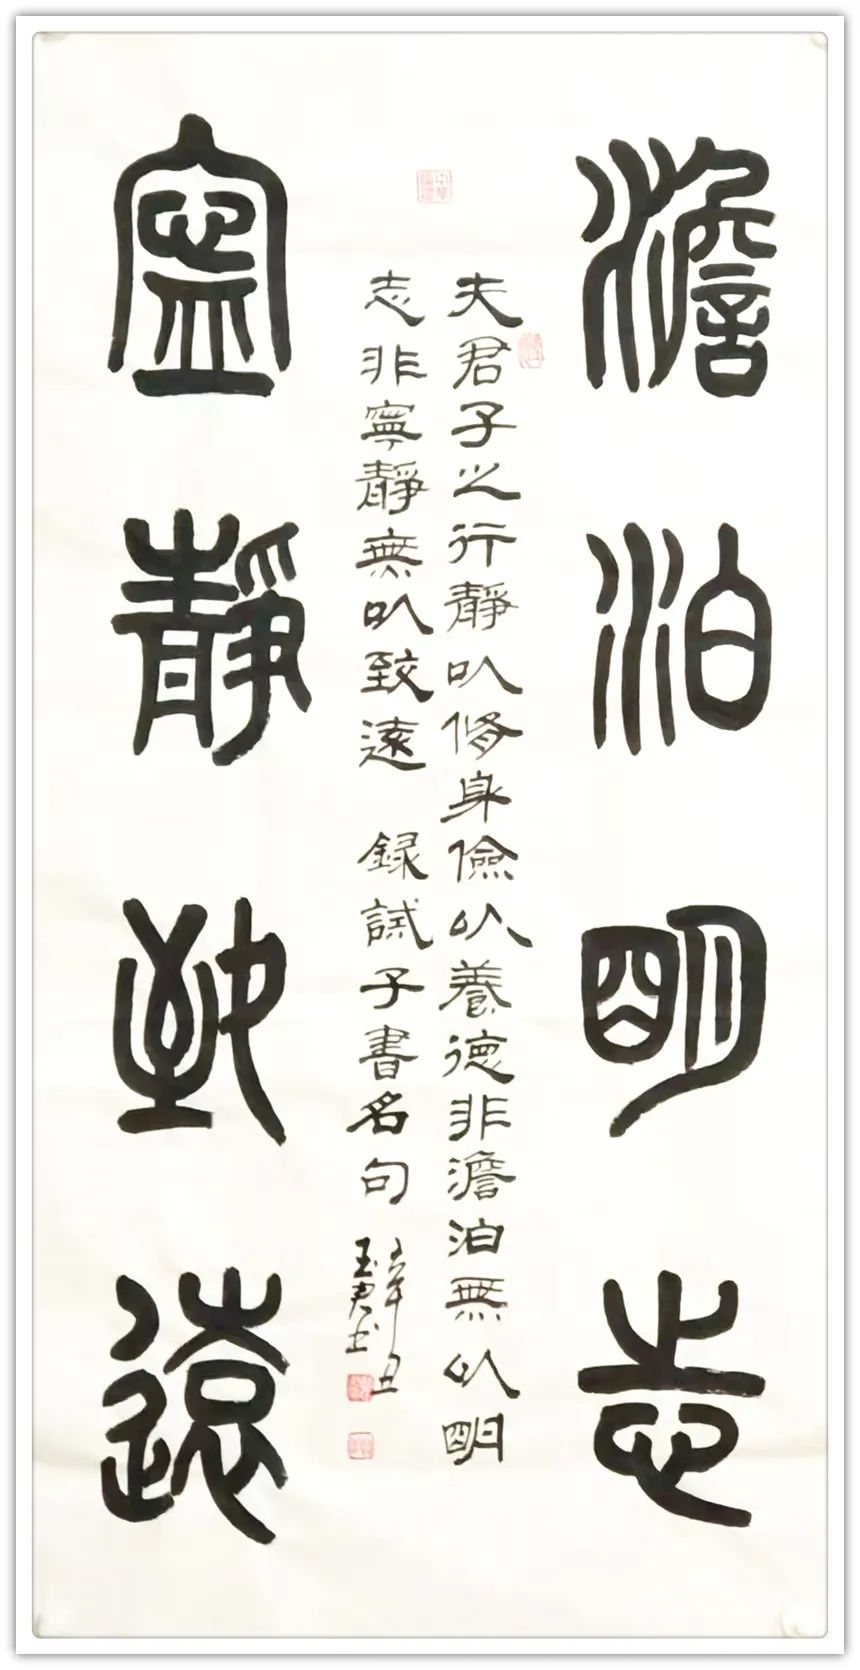 澹泊明志
夫君子之行靜以脩身儉以養德非澹泊無以明
志非寧靜無以致遠 録誡子書名句
辛丑
玉君书
寍靜致遠